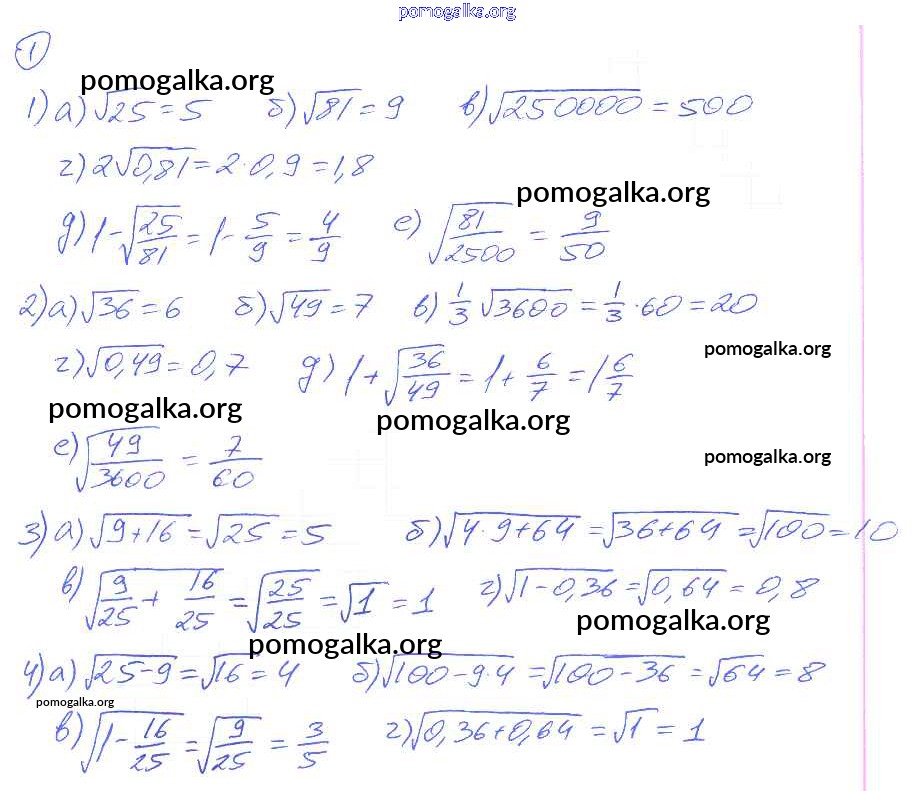 pomogalka.org
1
pomogalka.org
1) а) √25 = 5 б) √81 = 9 в) √250000 = 500
г) 2√0,81 = 2·0,9 = 1,8
pomogalka.org
д) 1 - √(25/81) = 1 - 5/9 = 4/9 е) √(81/2500) = 9/50
2) а) √36 = 6 б) √49 = 7 в) 1/3 √3600 = 1/3 · 60 = 20
pomogalka.org
г) √0,49 = 0,7 д) 1 + √(36/49) = 1 + 6/7 = 1 6/7
pomogalka.org
pomogalka.org
е) √(49/3600) = 7/60
pomogalka.org
3) а) √(9+16) = √25 = 5 б) √(4·9+64) = √(36+64) = √100 = 10
в) √(9/25 + 16/25) = √(25/25) = √1 = 1 г) √(1-0,36) = √0,64 = 0,8
pomogalka.org
pomogalka.org
4) а) √(25-9) = √16 = 4 б) √(100-9·4) = √(100-36) = √64 = 8
pomogalka.org
в) √(1 - 16/25) = √(9/25) = 3/5 г) √(0,36+0,64) = √1 = 1